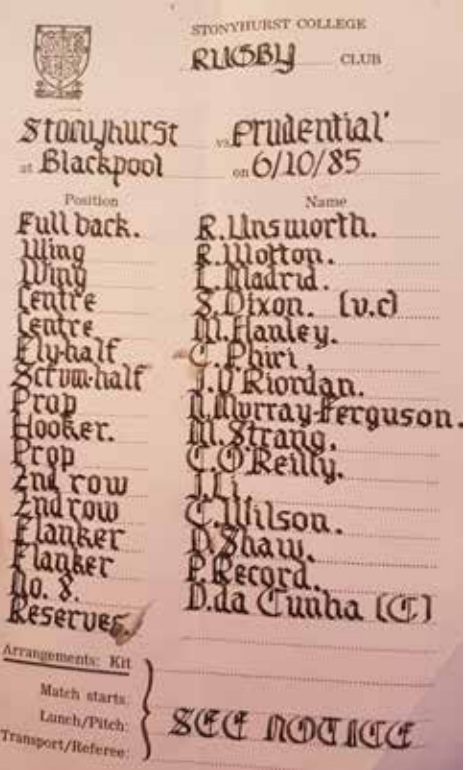 STONYHURST COLLEGE
RUGBY CLUB
Stonyhurst vs. Prudential'
at Blackpool on 6/10/85
Position Name
Full back. R.Unsworth.
Wing R.Wotton.
Wing L.Madrid.
Centre S.Dixon. (v.c)
Centre M.Hanley.
Fly-half C.Phiri.
Scrum-half J.O'Riordan.
Prop N.Murray-Ferguson.
Hooker. M.Strang.
Prop C.O'Reilly.
2nd row J.Li.
2nd row C.Wilson.
Flanker D.Shaw.
Flanker P.Record.
No. 8. D.da Cunha (C)
Reserves
Arrangements: Kit
Match starts:
Lunch/Pitch: SEE NOTICE
Transport/Referee: